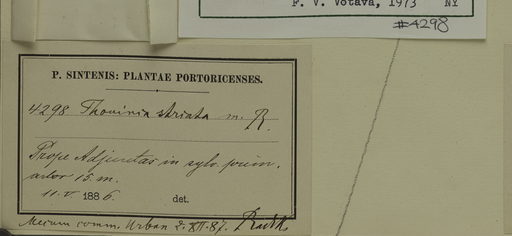 F. V. Votava, 1973 NY
#4298
P. SINTENIS: PLANTAE PORTORICENSES.
4298 Thouinia striata m. R.
Prope Adjuntas in sylv. prim.
arbor 15 m.
11. V. 1886. det.
Mecum comm. Urban 2. XII. 87. Radlk.